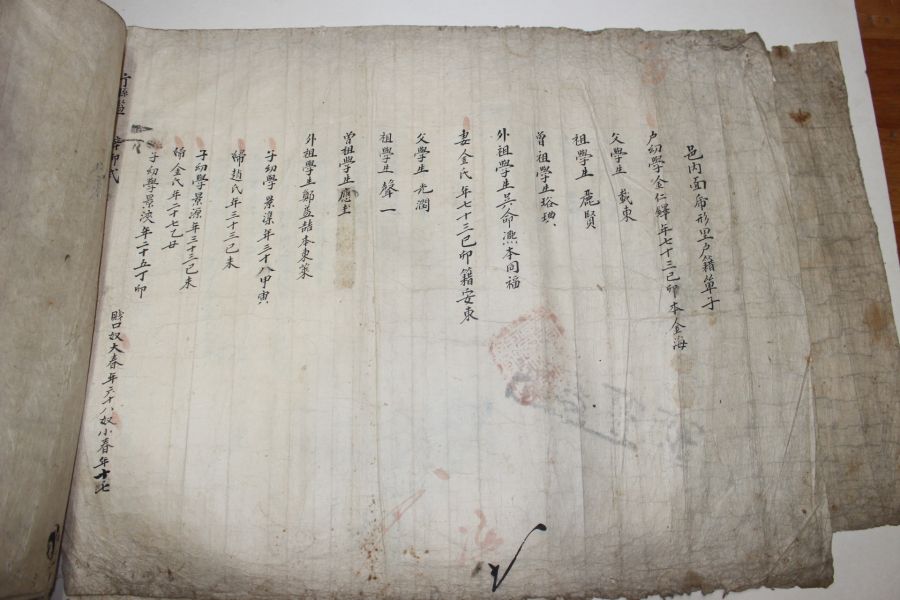 邑內面舟形里戶籍單子
戶幼學金仁鐸年七十三己卯本金海
父學生 載東
祖學生 麗賢
曾祖學生 珞璵
外祖學生吳命熙本同福
妻金氏年七十三己卯籍安東
父學生 光潤
祖學生 聲一
曾祖學生應圭
外祖學生鄭益喆本東萊
子幼學 景漢年三十八甲寅
婦 趙氏年三十三己未
子幼學景源年三十三己未
婦金氏年二十七乙丑
子幼學景浹年二十五丁卯
賤口奴大春年六十八奴小春年十七
行縣監